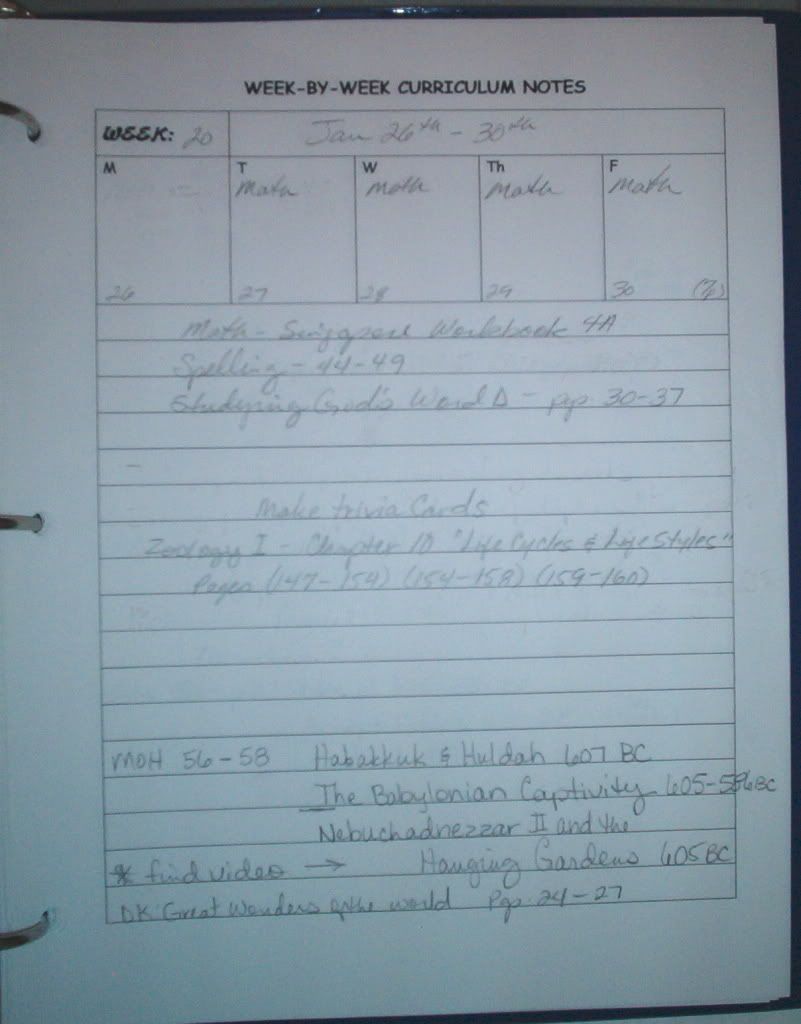 WEEK-BY-WEEK CURRICULUM NOTES
WEEK: 20 Jan 26th - 30th
M T W Th F
Math Math Math Math
26 27 28 29 30
Math - Singapore Workbook 4A
Spelling - 44-49
Studying God's Word D - pgs. 30-37
Make trivia Cards
Zoology I - Chapter 10 "Life Cycles & Life Styles"
Pages (147-154) (154-158) (159-160)
MOH 56-58 Habakkuk & Huldah 607 BC
The Babylonian Captivity 605-586 BC
Nebuchadnezzar II and the
* find video → Hanging Gardens 605 BC
DK Great Wonders of the world Pgs. 24-27